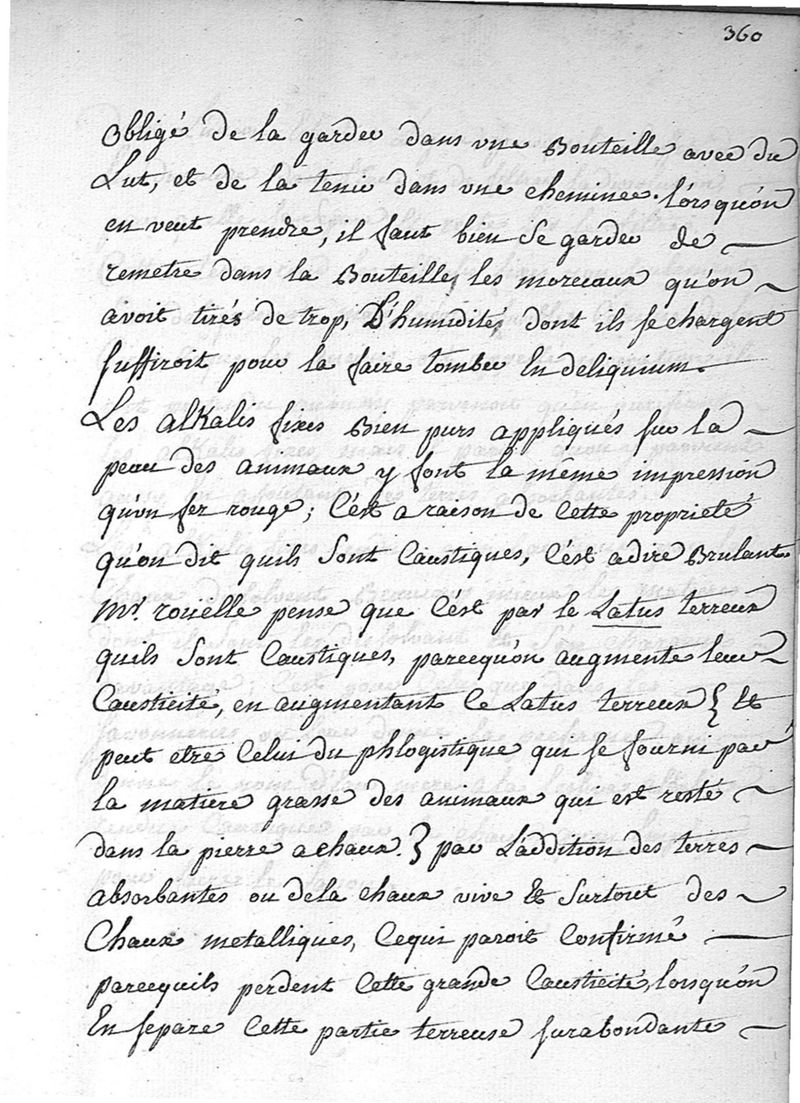 360
obligé de la garder dans vne Bouteille avec du
Lut, et de la tenir dans vne cheminée. lorsqu'on
en veut prendre, il faut bien se garder de
remetre dans la Bouteille les morceaux qu'on
avoit tirés de trop, L'humidité dont ils se chargent
suffiroit pour la faire tomber En deliquium.
Les alKalis fixes Bien purs appliqués sur la
peau des animaux y font la meme impression
qu'un fer rouge; C'est a raison de Cette proprieté
qu'on dit quils Sont Caustiques, C'est adire Brulants
Mr. rouelle pense que C'est par le Latus terreux
quils Sont Caustiques, parcequ'on augmente leur
Causticité, en augmentant Ce Latus terreux } Et
peut etre Celui du phlogistique qui se fourni par
la matiere grasse des animaux qui est resté
dans la pierre achaux. } par L'addition des terres
absorbantes ou dela chaux vive Et Surtout des
Chaux metalliques, Cequi paroit Confirmé
parcequils perdent Cette grande Causticité, lorsqu'on
En separe Cette partie terreuse surabondante